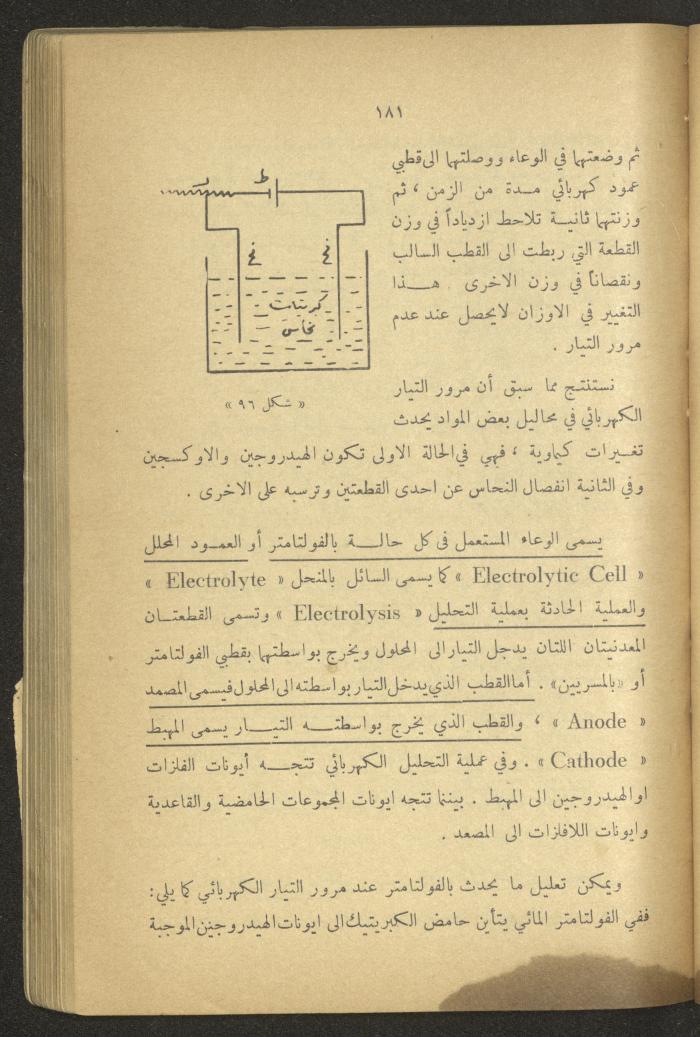 ١٨١
ثم وضعتهما في الوعاء ووصلتهما الى قطبي
عمود كهربائي مدة من الزمن ، ثم
وزنتهما ثانية تلاحظ ازدياداً في وزن
القطعة التي ربطت الى القطب السالب
ونقصاناً في وزن الاخرى . هذا
التغيير في الاوزان لايحصل عند عدم
مرور التيار .
ط
غ غ
كبريتات
نحاس
« شكل ٩٦ »
نستنتج مما سبق أن مرور التيار
الكهربائي في محاليل بعض المواد يحدث
تغيرات كيماوية ، فهي في الحالة الاولى تكون الهيدروجين والاوكسجين
وفي الثانية انفصال النحاس عن احدى القطعتين وترسبه على الاخرى .
يسمى الوعاء المستعمل في كل حالة بالفولتامتر أو العمود المحلل
« Electrolytic Cell » كما يسمى السائل بالمنحل « Electrolyte »
والعملية الحادثة بعملية التحليل « Electrolysis » وتسمى القطعتان
المعدنيتان اللتان يدجل التيار الى المحلول ويخرج بواسطتهما بقطبي الفولتامتر
أو «بالمسريين» . أما القطب الذي يدخل التيار بواسطته الى المحلول فيسمى المصمد
« Anode » ، والقطب الذي يخرج بواسطته التيار يسمى المهبط
« Cathode » . وفي عملية التحليل الكهربائي تتجه أيونات الفلزات
او الهيدروجين الى المهبط . بيننما تتجه ايونات المجموعات الحامضية والقاعدية
وايونات اللافلزات الى المصعد .
ويمكن تعليل ما يحدث بالفولتامتر عند مرور التيار الكهربائي كما يلي :
ففي الفولتامتر المائي يتأين حامض الكبريتيك الى ايونات الهيدروجين الموجبة